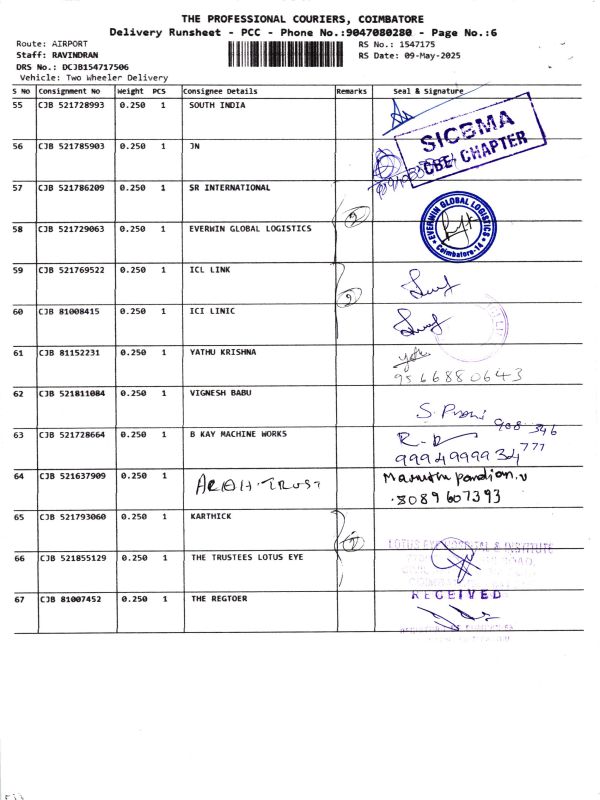 THE PROFESSIONAL COURIERS, COIMBATORE
Delivery Runsheet - PCC - Phone No.:9047080280 - Page No.:6
Route: AIRPORT
Staff: RAVINDRAN
DRS No.: DCJB154717506
Vehicle: Two Wheeler Delivery
RS No.: 1547175
RS Date: 09-May-2025
S No Consignment No Weight PCS Consignee Details Remarks Seal & Signature
55 CJB 521728993 0.250 1 SOUTH INDIA
SICBMA
CBE/ CHAPTER
56 CJB 521785903 0.250 1 JN
57 CJB 521786209 0.250 1 SR INTERNATIONAL
58 CJB 521729063 0.250 1 EVERWIN GLOBAL LOGISTICS
EVERWIN GLOBAL LOGISTICS
Coimbatore-14
59 CJB 521769522 0.250 1 ICL LINK
60 CJB 81008415 0.250 1 ICI LINIC
61 CJB 81152231 0.250 1 YATHU KRISHNA
9566880643
62 CJB 521811084 0.250 1 VIGNESH BABU
63 CJB 521728664 0.250 1 B KAY MACHINE WORKS
64 CJB 521637909 0.250 1
8089607393
65 CJB 521793060 0.250 1 KARTHICK
66 CJB 521855129 0.250 1 THE TRUSTEES LOTUS EYE
LOTUS EYE HOSPITAL & INSTITUTE
67 CJB 81007452 0.250 1 THE REGTOER
RECEIVED